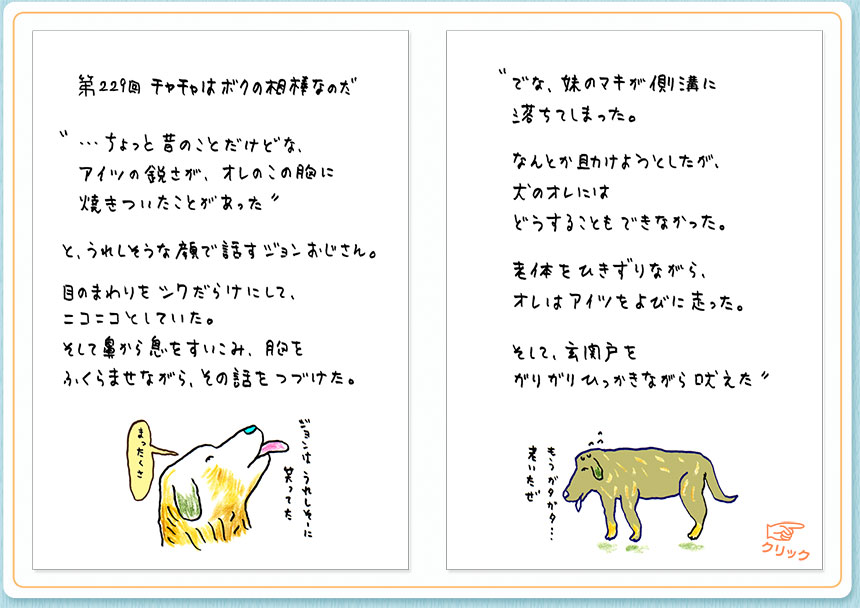 第229回 チャチャはボクの相棒なのだ
〝…ちょっと昔のことだけどな、
アイツの鋭さが、オレのこの胸に
焼きついたことがあった〟
と、うれしそうな顔で話すジョンおじさん。
目のまわりをシワだらけにして、
ニコニコとしていた。
そして鼻から息をすいこみ、胸を
ふくらませながら、その話をつづけた。
まったくさ
ジョンは うれしそーに
笑ってた
〝でな、妹のマキが側溝に
落ちてしまった。
なんとか助けようとしたが、
犬のオレには
どうすることもできなかった。
老体をひきずりながら、
オレはアイツをよびに走った。
そして、玄関戸を
がりがりひっかきながら吠えた〟
もうガタガタ…
老いたぜ
クリック